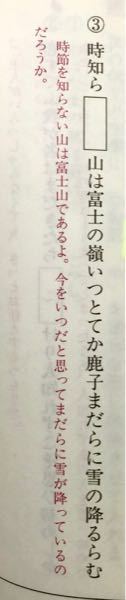 ③ 時知ら□山は富士の嶺いつとてか鹿子まだらに雪の降るらむ
時節を知らない山は富士山であるよ。今をいつだと思ってまだらに雪が降っているの
だろうか。